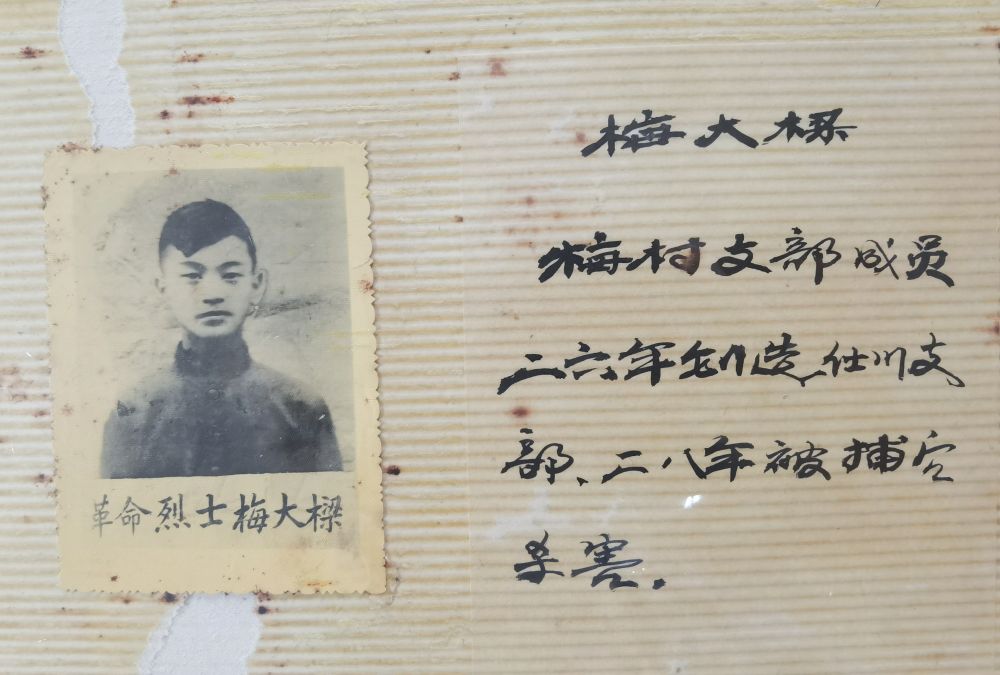 革命烈士梅大樑
梅大樑
梅村支部成员
二六年创造仕川支
部、二八年被捕
杀害.